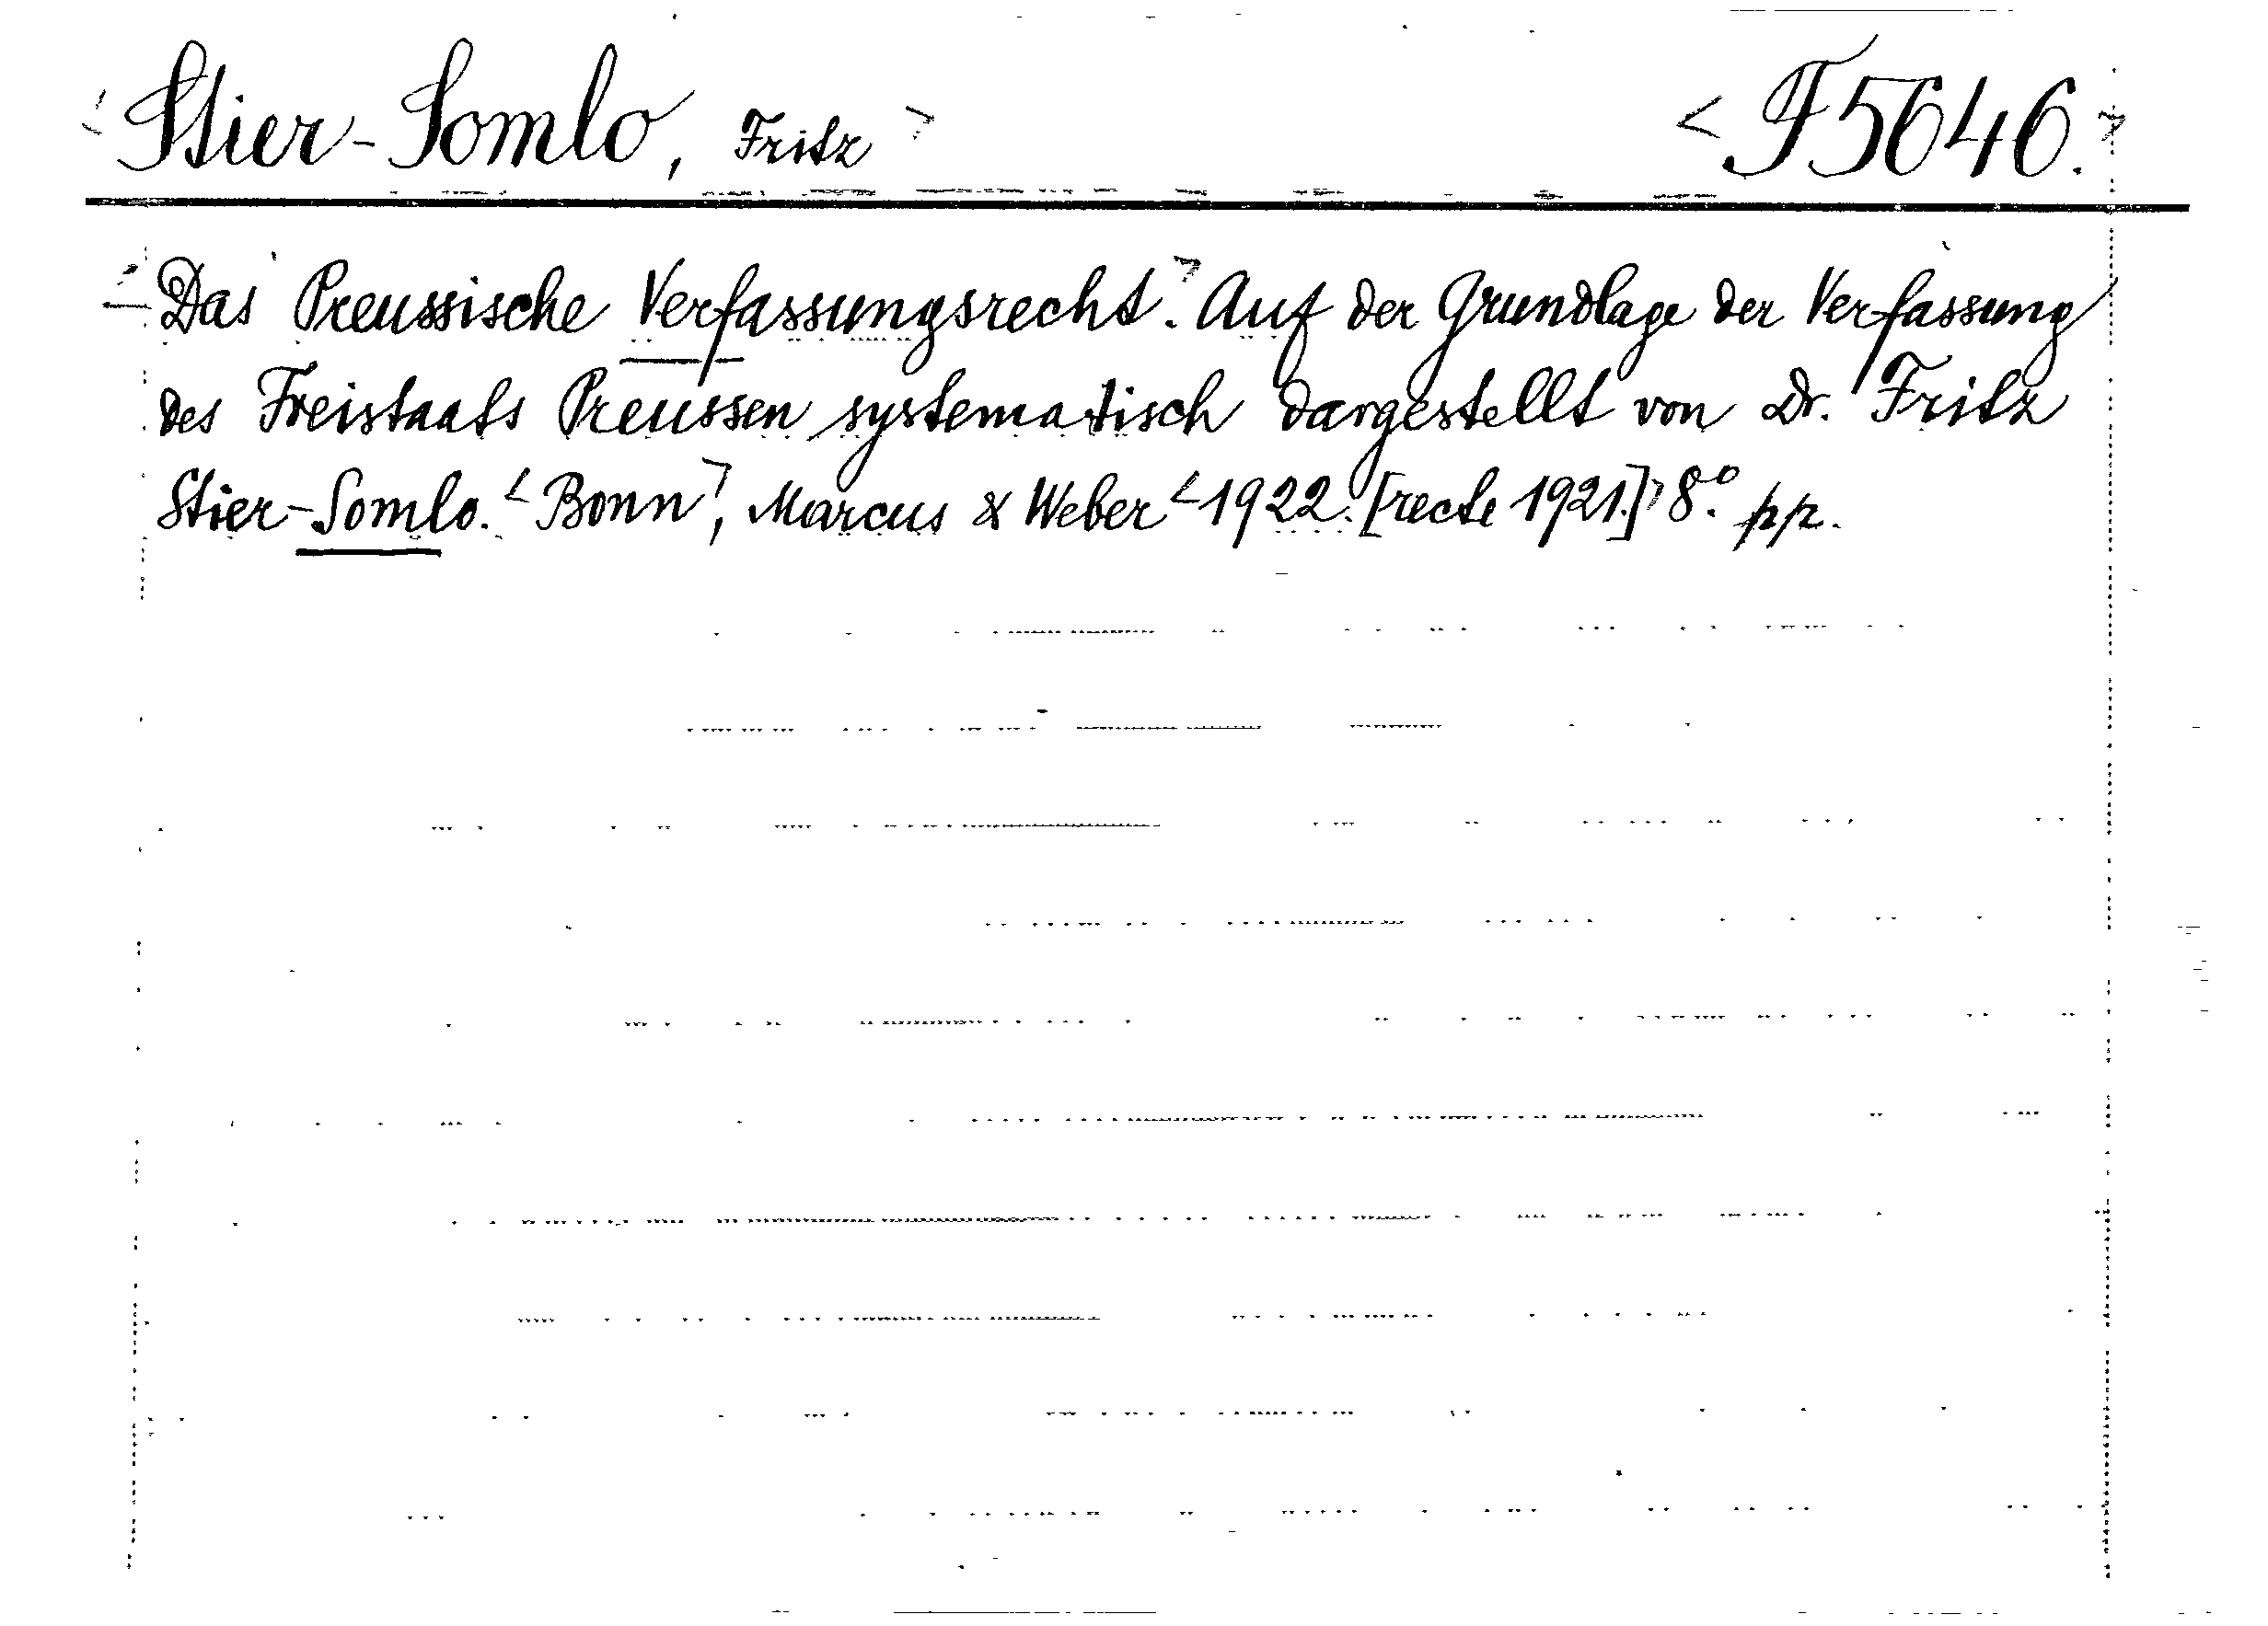 <Stier-Somlo, Fritz> <F5646.>
<Das Preussische Verfassungsrecht.> Auf der Grundlage der Verfassung
des Freistaats Preussen systematisch dargestellt von Dr. Fritz
Stier-Somlo. <Bonn>, Marcus & Weber <1922. [recte 1921.]> 8.° pp.